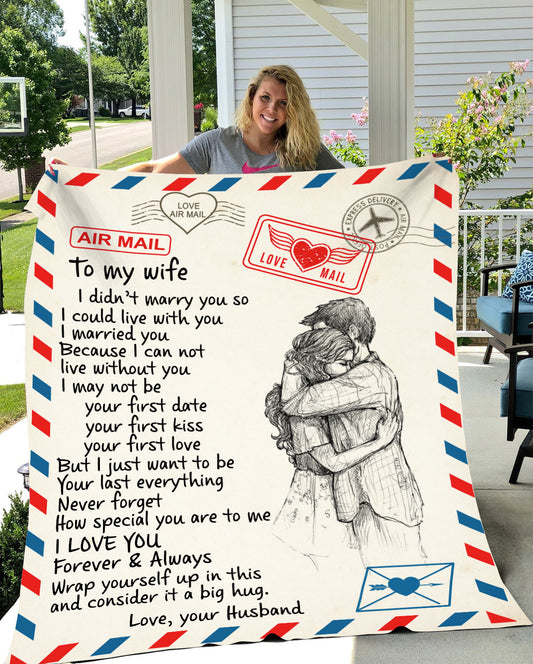 LOVE
AIR MAIL
EXPRESS DELIVERY
AIR MAIL
LOVE MAIL
AIR MAIL
To my wife
I didn't marry you so
I could live with you
I married you
Because I can not
live without you
I may not be
your first date
your first kiss
your first love
But I just want to be
Your last everything
Never forget
How special you are to me
I LOVE YOU
Forever & Always
Wrap yourself up in this
and consider it a big hug.
Love, your Husband